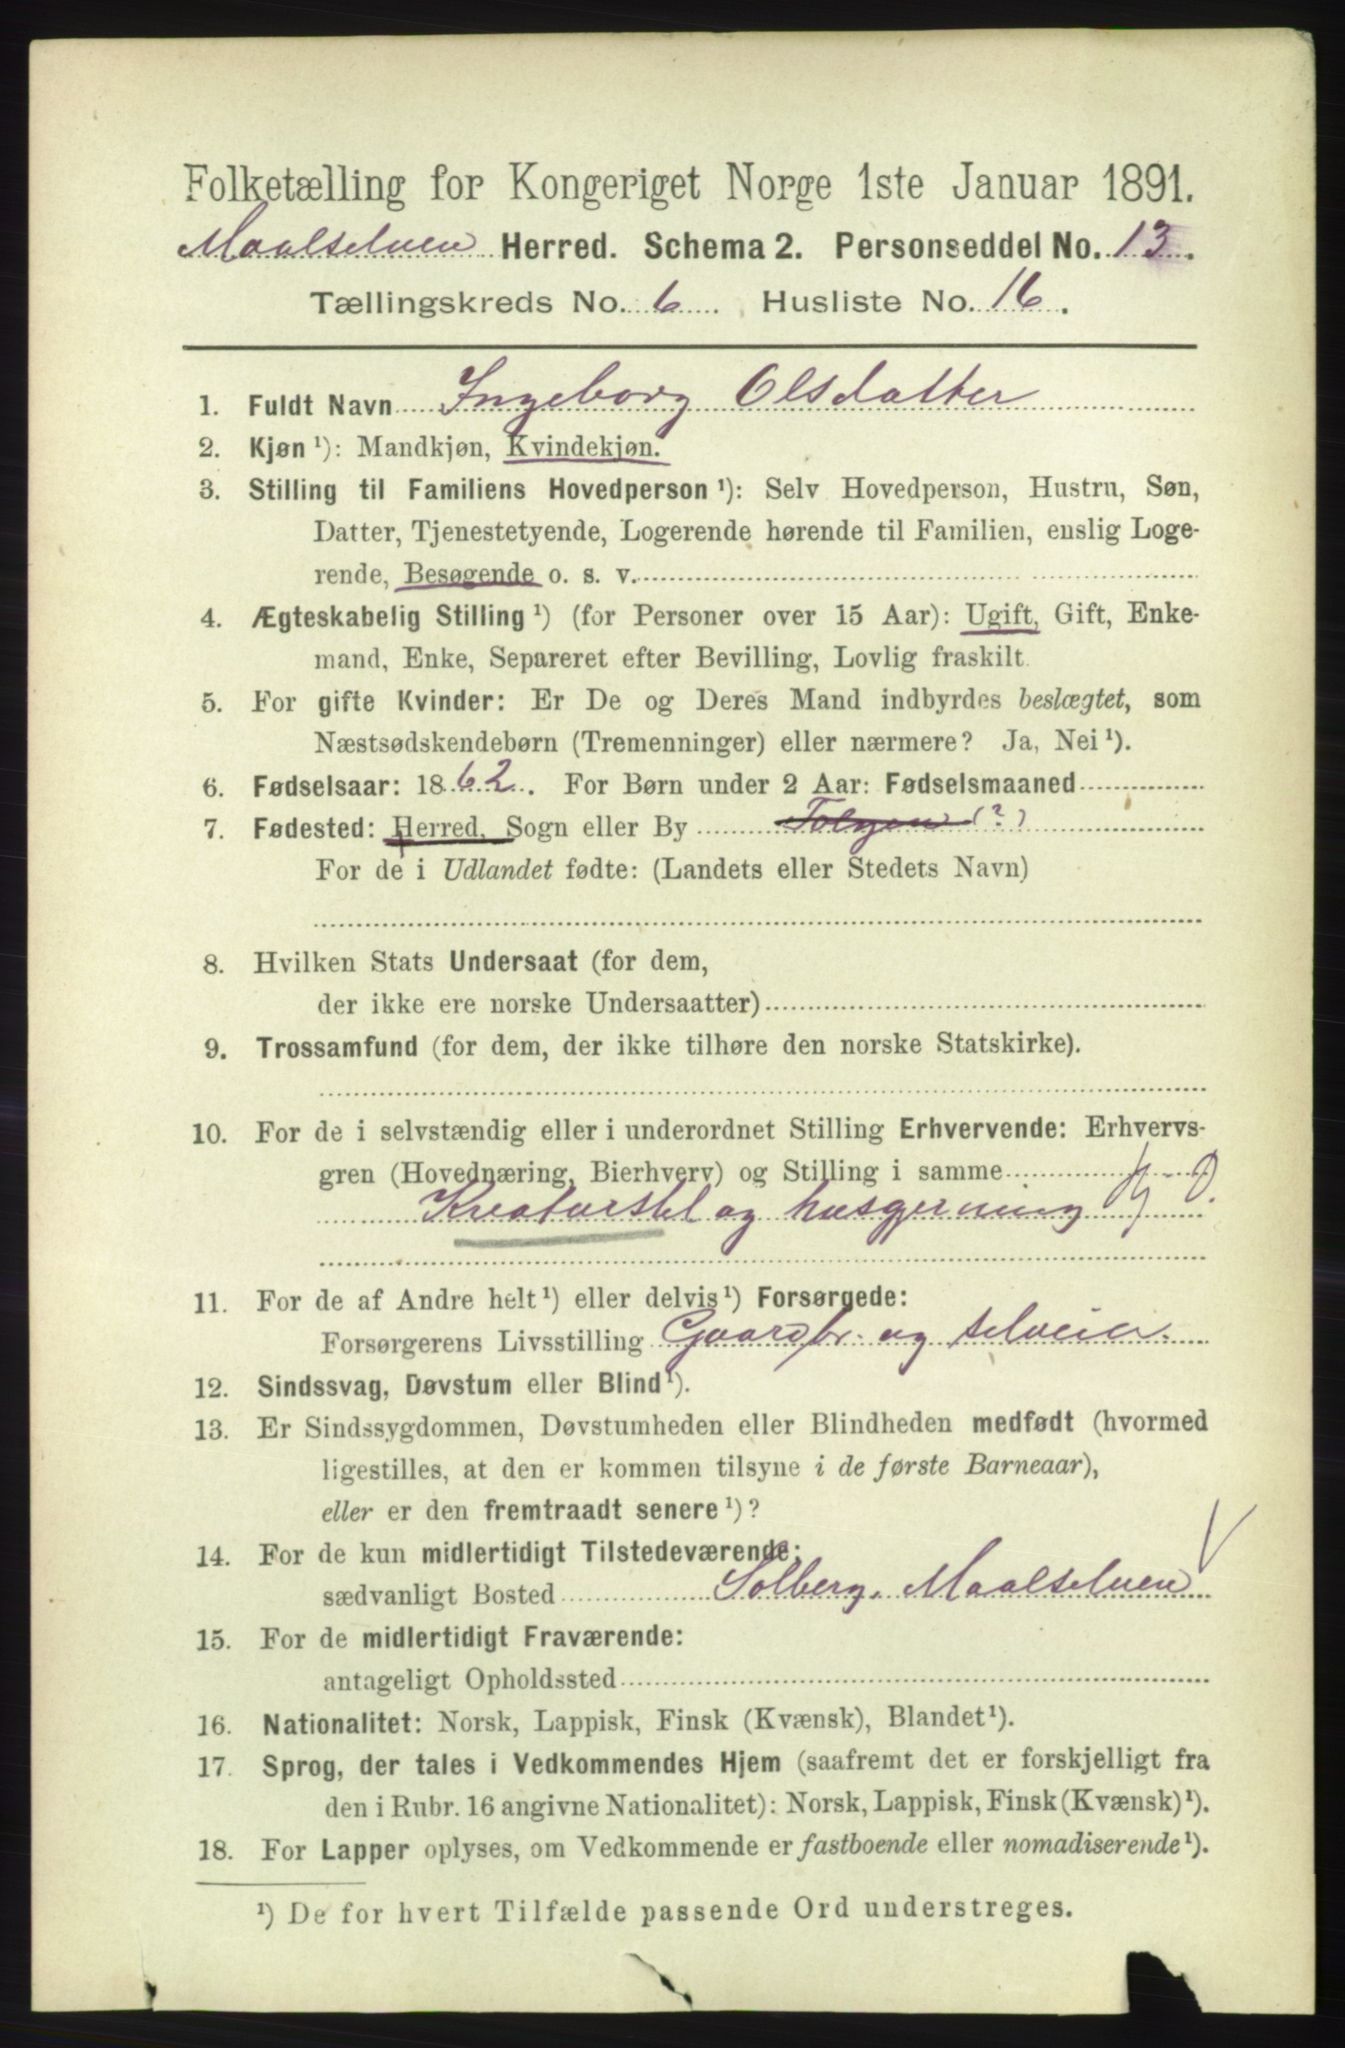 Folketælling for Kongeriget Norge 1ste Januar 1891.
Maalselven Herred. Schema 2. Personseddel No. 13.
Tællingskreds No. 6. Husliste No. 16.
1. Fuldt Navn Ingeborg Olsdatter
2. Kjøn ¹): Mandkjøn, Kvindekjøn.
3. Stilling til Familiens Hovedperson ¹): Selv Hovedperson, Hustru, Søn,
Datter, Tjenestetyende, Logerende hørende til Familien, enslig Loge-
rende, Besøgende o. s. v.
4. Ægteskabelig Stilling ¹) (for Personer over 15 Aar): Ugift, Gift, Enke-
mand, Enke, Separeret efter Bevilling, Lovlig fraskilt.
5. For gifte Kvinder: Er De og Deres Mand indbyrdes beslægtet, som
Næstsødskendebørn (Tremenninger) eller nærmere? Ja, Nei ¹).
6. Fødselsaar: 1862. For Børn under 2 Aar: Fødselsmaaned
7. Fødested: Herred, Sogn eller By Tolgen (?)
For de i Udlandet fødte: (Landets eller Stedets Navn)
8. Hvilken Stats Undersaat (for dem,
der ikke ere norske Undersaatter)
9. Trossamfund (for dem, der ikke tilhøre den norske Statskirke).
10. For de i selvstændig eller i underordnet Stilling Erhvervende: Erhvervs-
gren (Hovednæring, Bierhverv) og Stilling i samme
Kreaturstel og husgjerning
11. For de af Andre helt ¹) eller delvis ¹) Forsørgede:
Forsørgerens Livsstilling Gaardbr. og selveier.
12. Sindssvag, Døvstum eller Blind ¹).
13. Er Sindssygdommen, Døvstumheden eller Blindheden medfødt (hvormed
ligestilles, at den er kommen tilsyne i de første Barneaar),
eller er den fremtraadt senere ¹)?
14. For de kun midlertidigt Tilstedeværende:
sædvanligt Bosted Solberg, Maalselven
15. For de midlertidigt Fraværende:
antageligt Opholdssted
16. Nationalitet: Norsk, Lappisk, Finsk (Kvænsk), Blandet ¹).
17. Sprog, der tales i Vedkommendes Hjem (saafremt det er forskjelligt fra
den i Rubr. 16 angivne Nationalitet): Norsk, Lappisk, Finsk (Kvænsk) ¹).
18. For Lapper oplyses, om Vedkommende er fastboende eller nomadiserende ¹).
¹) De for hvert Tilfælde passende Ord understreges.